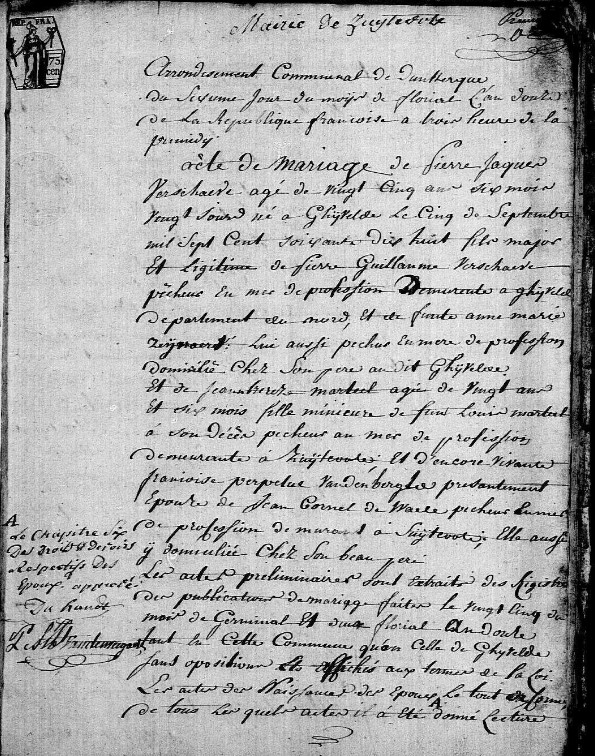 Mairie de Zuytcote
REP. FRA.
75
cen
Arrondisement Communal de dunkerque
du Sixieme Jour du moys de florial L'an douze
de La Republique francoise a trois heure de la
acte de mariage de pierre Jaques
Verschaeve agé de vingt Cinq ans six mois
Vengt Jours né a Ghyvelde Le Cinq de Septembre
mil Sept Cent Soixante dix huit fils major
Et Legitime de pierre Guillaume Verschaeve
pécheur En mer de profession Demeurente a ghyvelde
departement du nord, Et de feute anne marie
Lui aussi pecheur En mere de profession
domicilié Chez Son pere au dit Ghyvelde
Et de Jeanne marteel agée de Vingt ans
Et six mois fille mineure de feu Louis marteel
à son décès pecheur au mer de profession
demeurante à Zuytcote Et d'encore Vivante
francoise perpetue Vandenberghe presantement
Epouze de Jean Cornel de Waele pecheur En mer
de profession de murant à Suytcote. Elle aussi
y domiciliée Chez Son beau pere
Les actes preliminaires sont Extraits des Registre
des publications de mariage faites le Vingt Cinq du
mois de Germinal Et deux florial an douze
tant En Cette Commune qu'en Celle de Ghyvelde
sans opositions affichés aux termes de la Loi
Les actes des Naissances des Epoux Le tout
de tous Les quels actes il à Eté donné Lecture
A
Le Chapitre Six
Des droits & devoirs
Respectifs des
Epoux